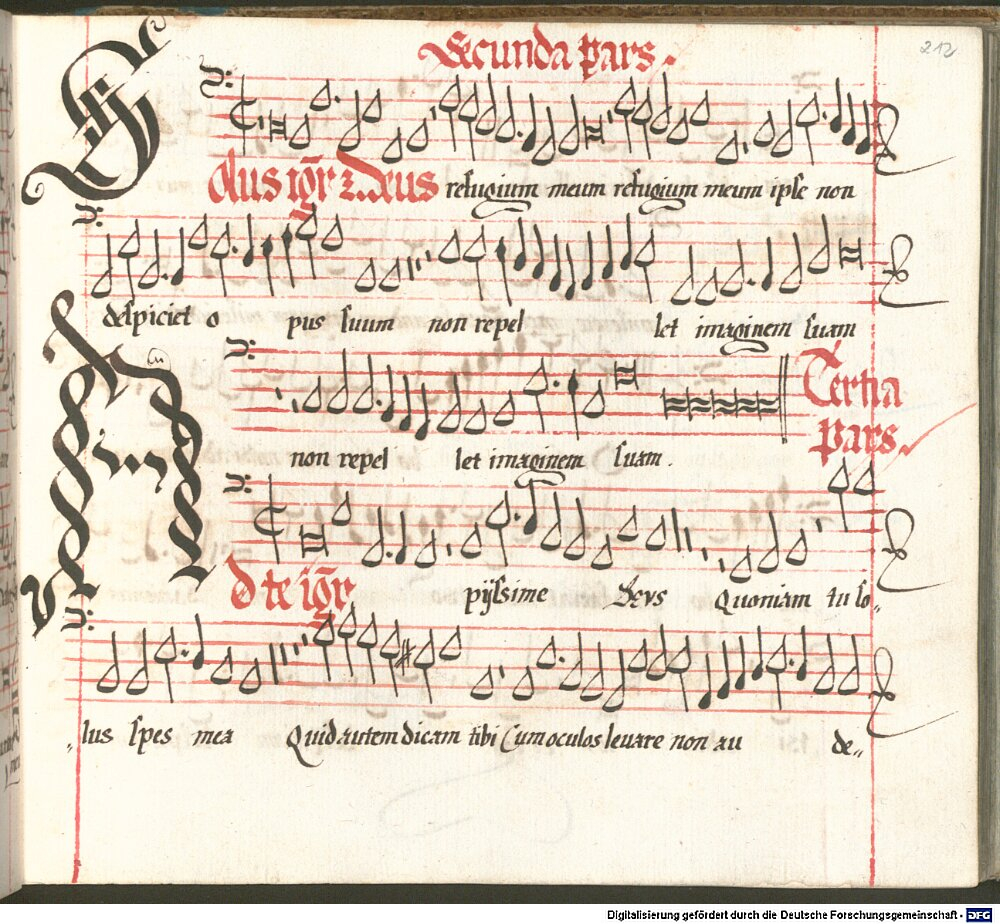 212
Secunda pars.
Solus igr z. Deus refugium meum refugium meum ipse non
despiciet o pus suum non repel let imaginem suam
non repel let imaginem suam.
Tertia
pars.
Ad te igr pijssime Deus Quoniam tu so„
„lus spes mea Quid autem dicam tibi Cum oculos levare non au de„
Digitalisierung gefördert durch die Deutsche Forschungsgemeinschaft - DFG